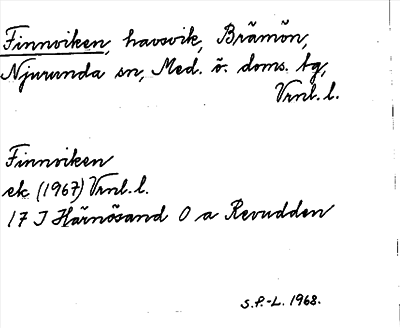 Finnviken, havsvik, Brämön,
Njurunda sn, Med. ö. doms. tg,
Vrnl. l.
Finnviken
ek (1967) Vrnl. l.
17 J Härnösand O a Revudden
S.P.-L. 1968.